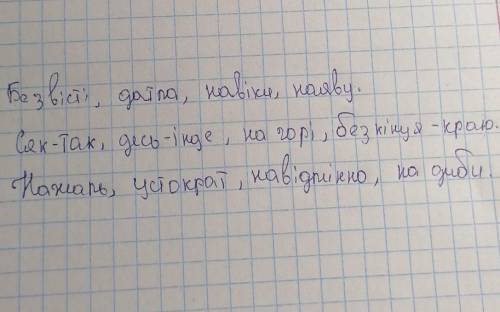 Безвісті, дотла, навіки, наяву.
Сяк-так, десь-інде, на горі, без кінця-краю.
Нажаль, устократ, навідмінно, на диби.